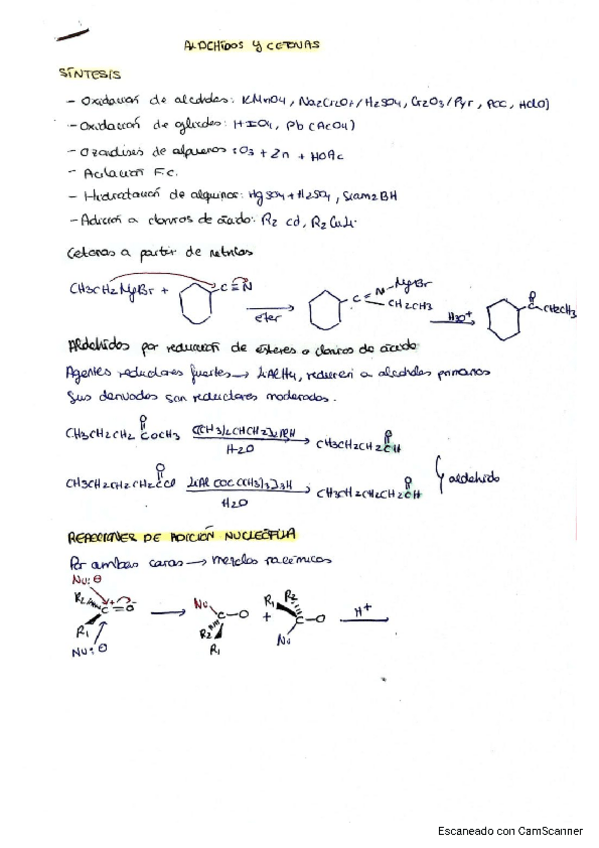 ALDEHIDOS Y CETONAS
SÍNTESIS
- Oxidación de alcoholes: KMnO4, Na2Cr2O7/H2SO4, Cr2O3/Pyr, PCC, HClO)
- Oxidación de glicoles: HIO4, Pb(AcO4)
- Ozonólisis de alquenos: O3 + Zn + HOAc
- Acilación F.C.
- Hidratación de alquinos: HgSO4 + H2SO4, Siam2BH
- Adición a cloruros de ácido: R2 Cd, R2CuLi
Cetonas a partir de nitrilos
CH3CH2MgBr + C≡N
éter
C=N-MgBr
CH2CH3
H3O+
O
C-CH2CH3
Aldehidos por reducción de ésteres o cloruros de ácido:
Agentes reductores fuertes → LiAlH4, reducen a alcoholes primarios
Sus derivados son reductores moderados.
CH3CH2CH2COCH3 [(CH3)2CHCH2]2AlH H2O CH3CH2CH2CH
CH3CH2CH2CH2CCl LiAl[OC(CH3)3]3H H2O CH3CH2CH2CH2CH
} aldehido
REACCIONES DE ADICIÓN NUCLEÓFILA
Por ambas caras → mezclas racémicas
Nu:⊖
R2 C=O R1
Nu:⊖
Nu C-O R2 R1
+
R1 R2 C-O Nu
H+
Escaneado con CamScanner